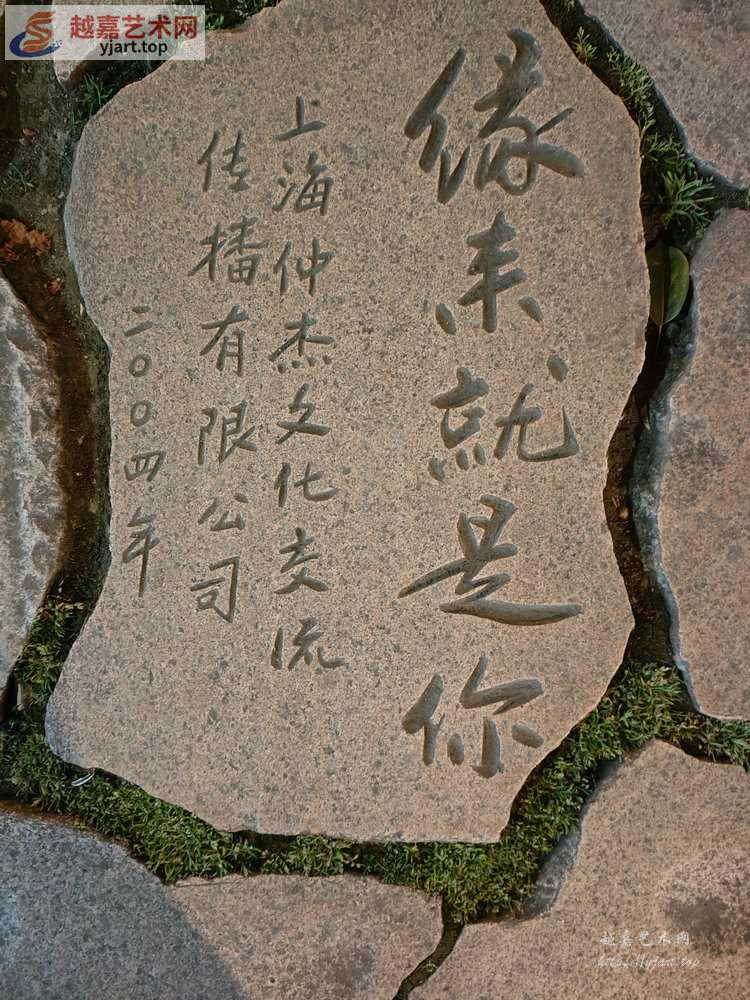 越嘉艺术网
yjart.top
缘来就是你
上海仲杰文化交流
传播有限公司
二〇〇四年
越嘉艺术网
https://yjart.top